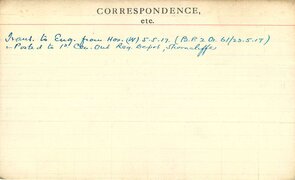 CORRESPONDENCE,
etc.
Trans. to Eng. from Hos. (W) 5.5.17. (B.R.2 O. 61/23.5.17)
Posted to 1st Cen. Ont. Reg. Depot, Shorncliffe